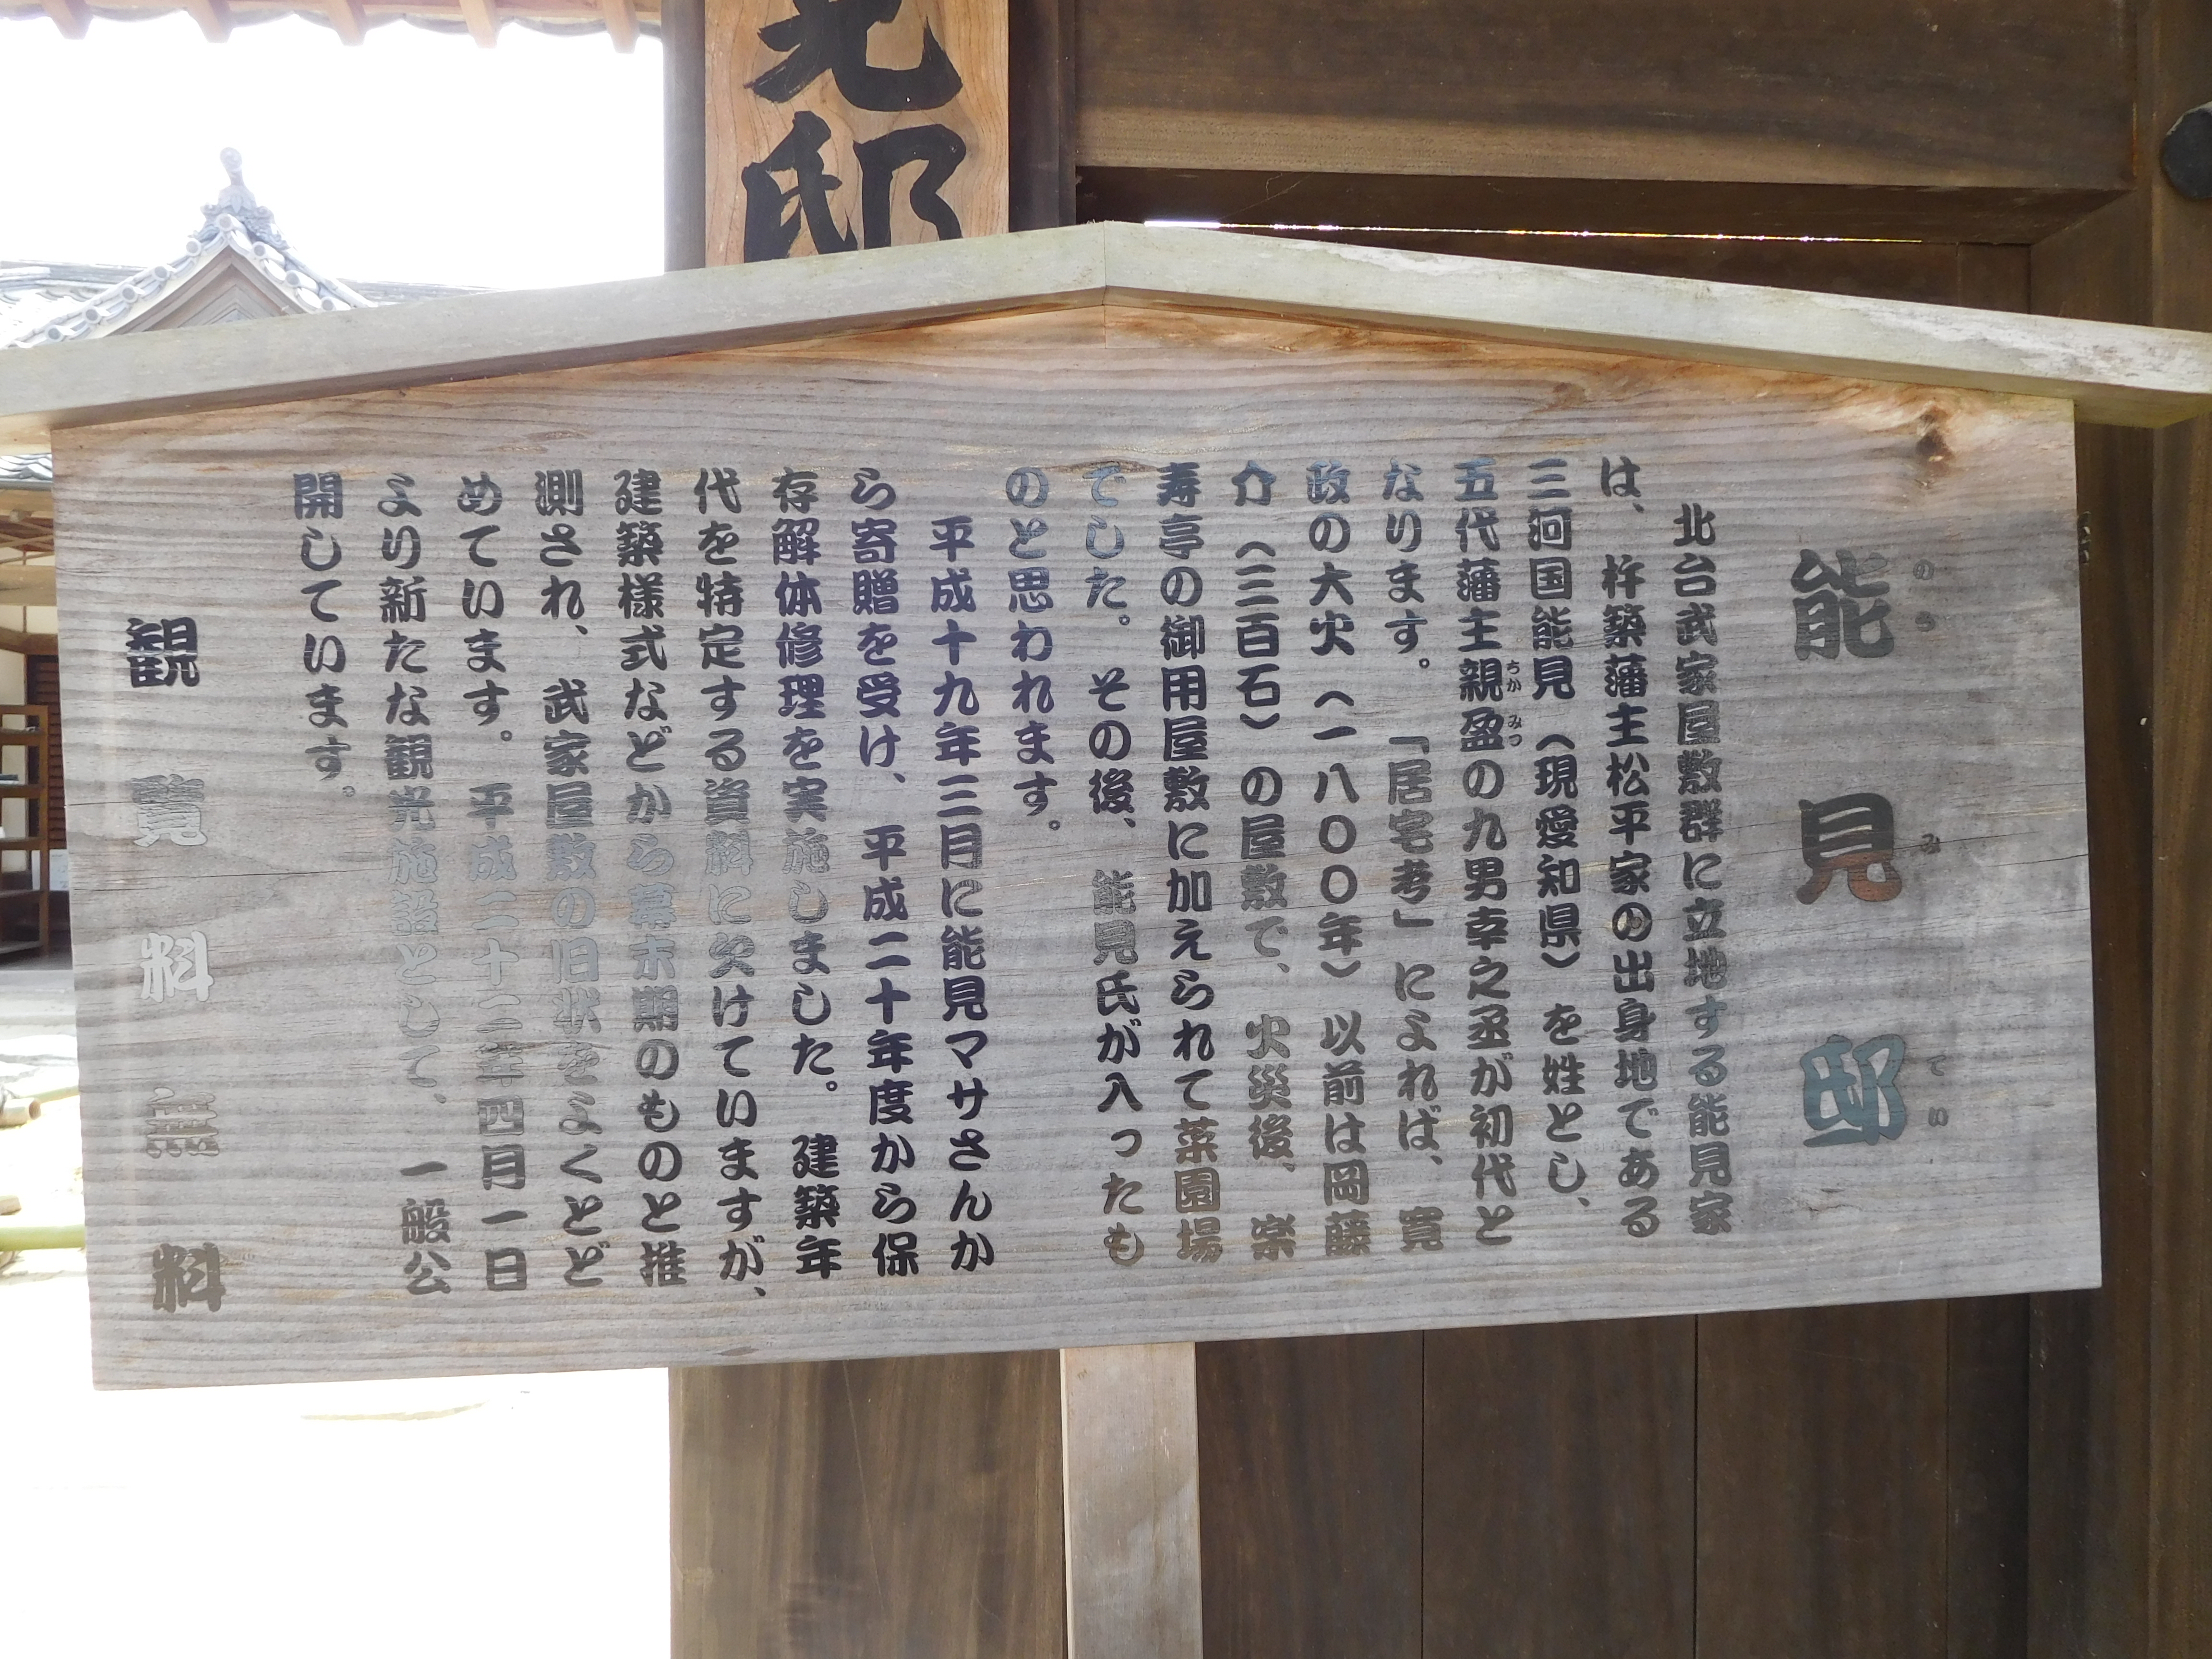 見邸
能見邸
のうみてい
北台武家屋敷群に立地する能見家
は、杵築藩主松平家の出身地である
三河国能見（現愛知県）を姓とし、
五代藩主親盈の九男幸之丞が初代と
ちかみつ
なります。「居宅考」によれば、寛
政の大火（一八〇〇年）以前は岡藤
介（三百石）の屋敷で、火災後、楽
寿亭の御用屋敷に加えられて菜園場
でした。その後、能見氏が入ったも
のと思われます。
平成十九年三月に能見マサさんか
ら寄贈を受け、平成二十年度から保
存解体修理を実施しました。建築年
代を特定する資料に欠けていますが、
建築様式などから幕末期のものと推
測され、武家屋敷の旧状をよくとど
めています。平成二十二年四月一日
より新たな観光施設として、一般公
開しています。
観覧料無料